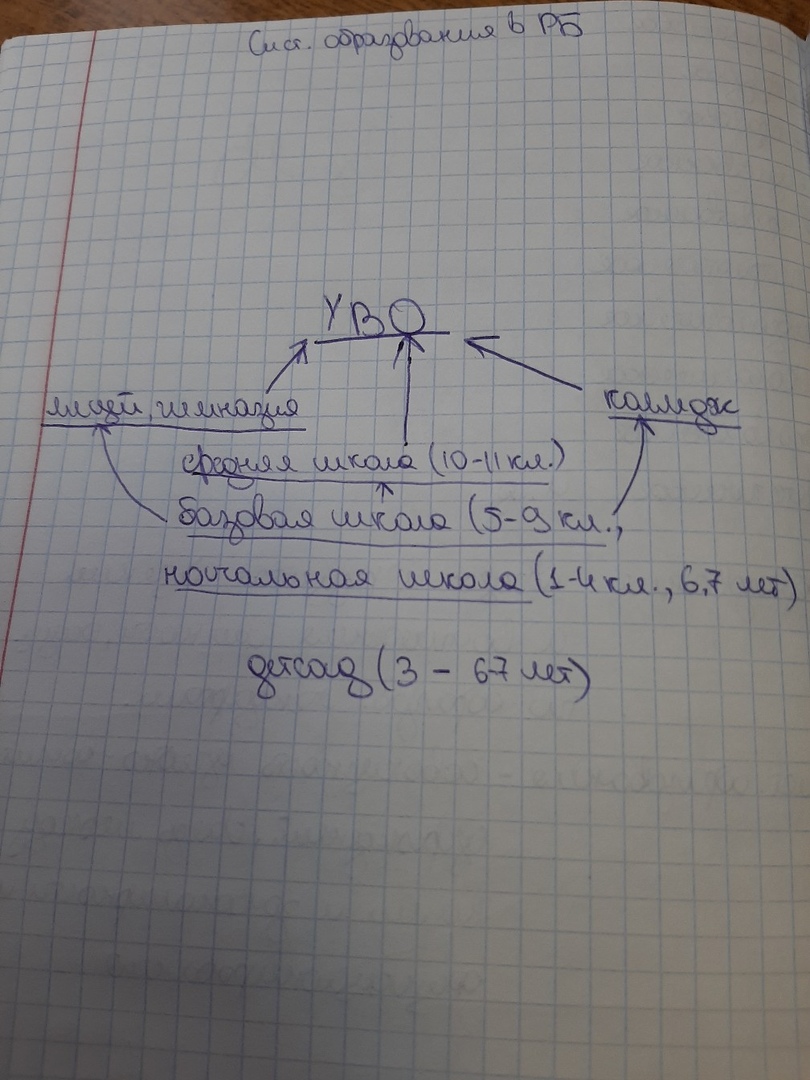 Сист. образования в РБ
УВО
лицей, гимназия
колледж
средняя школа (10-11 кл.)
базовая школа (5-9 кл.,
начальная школа (1-4 кл., 6,7 лет)
детсад (3 - 6-7 лет)